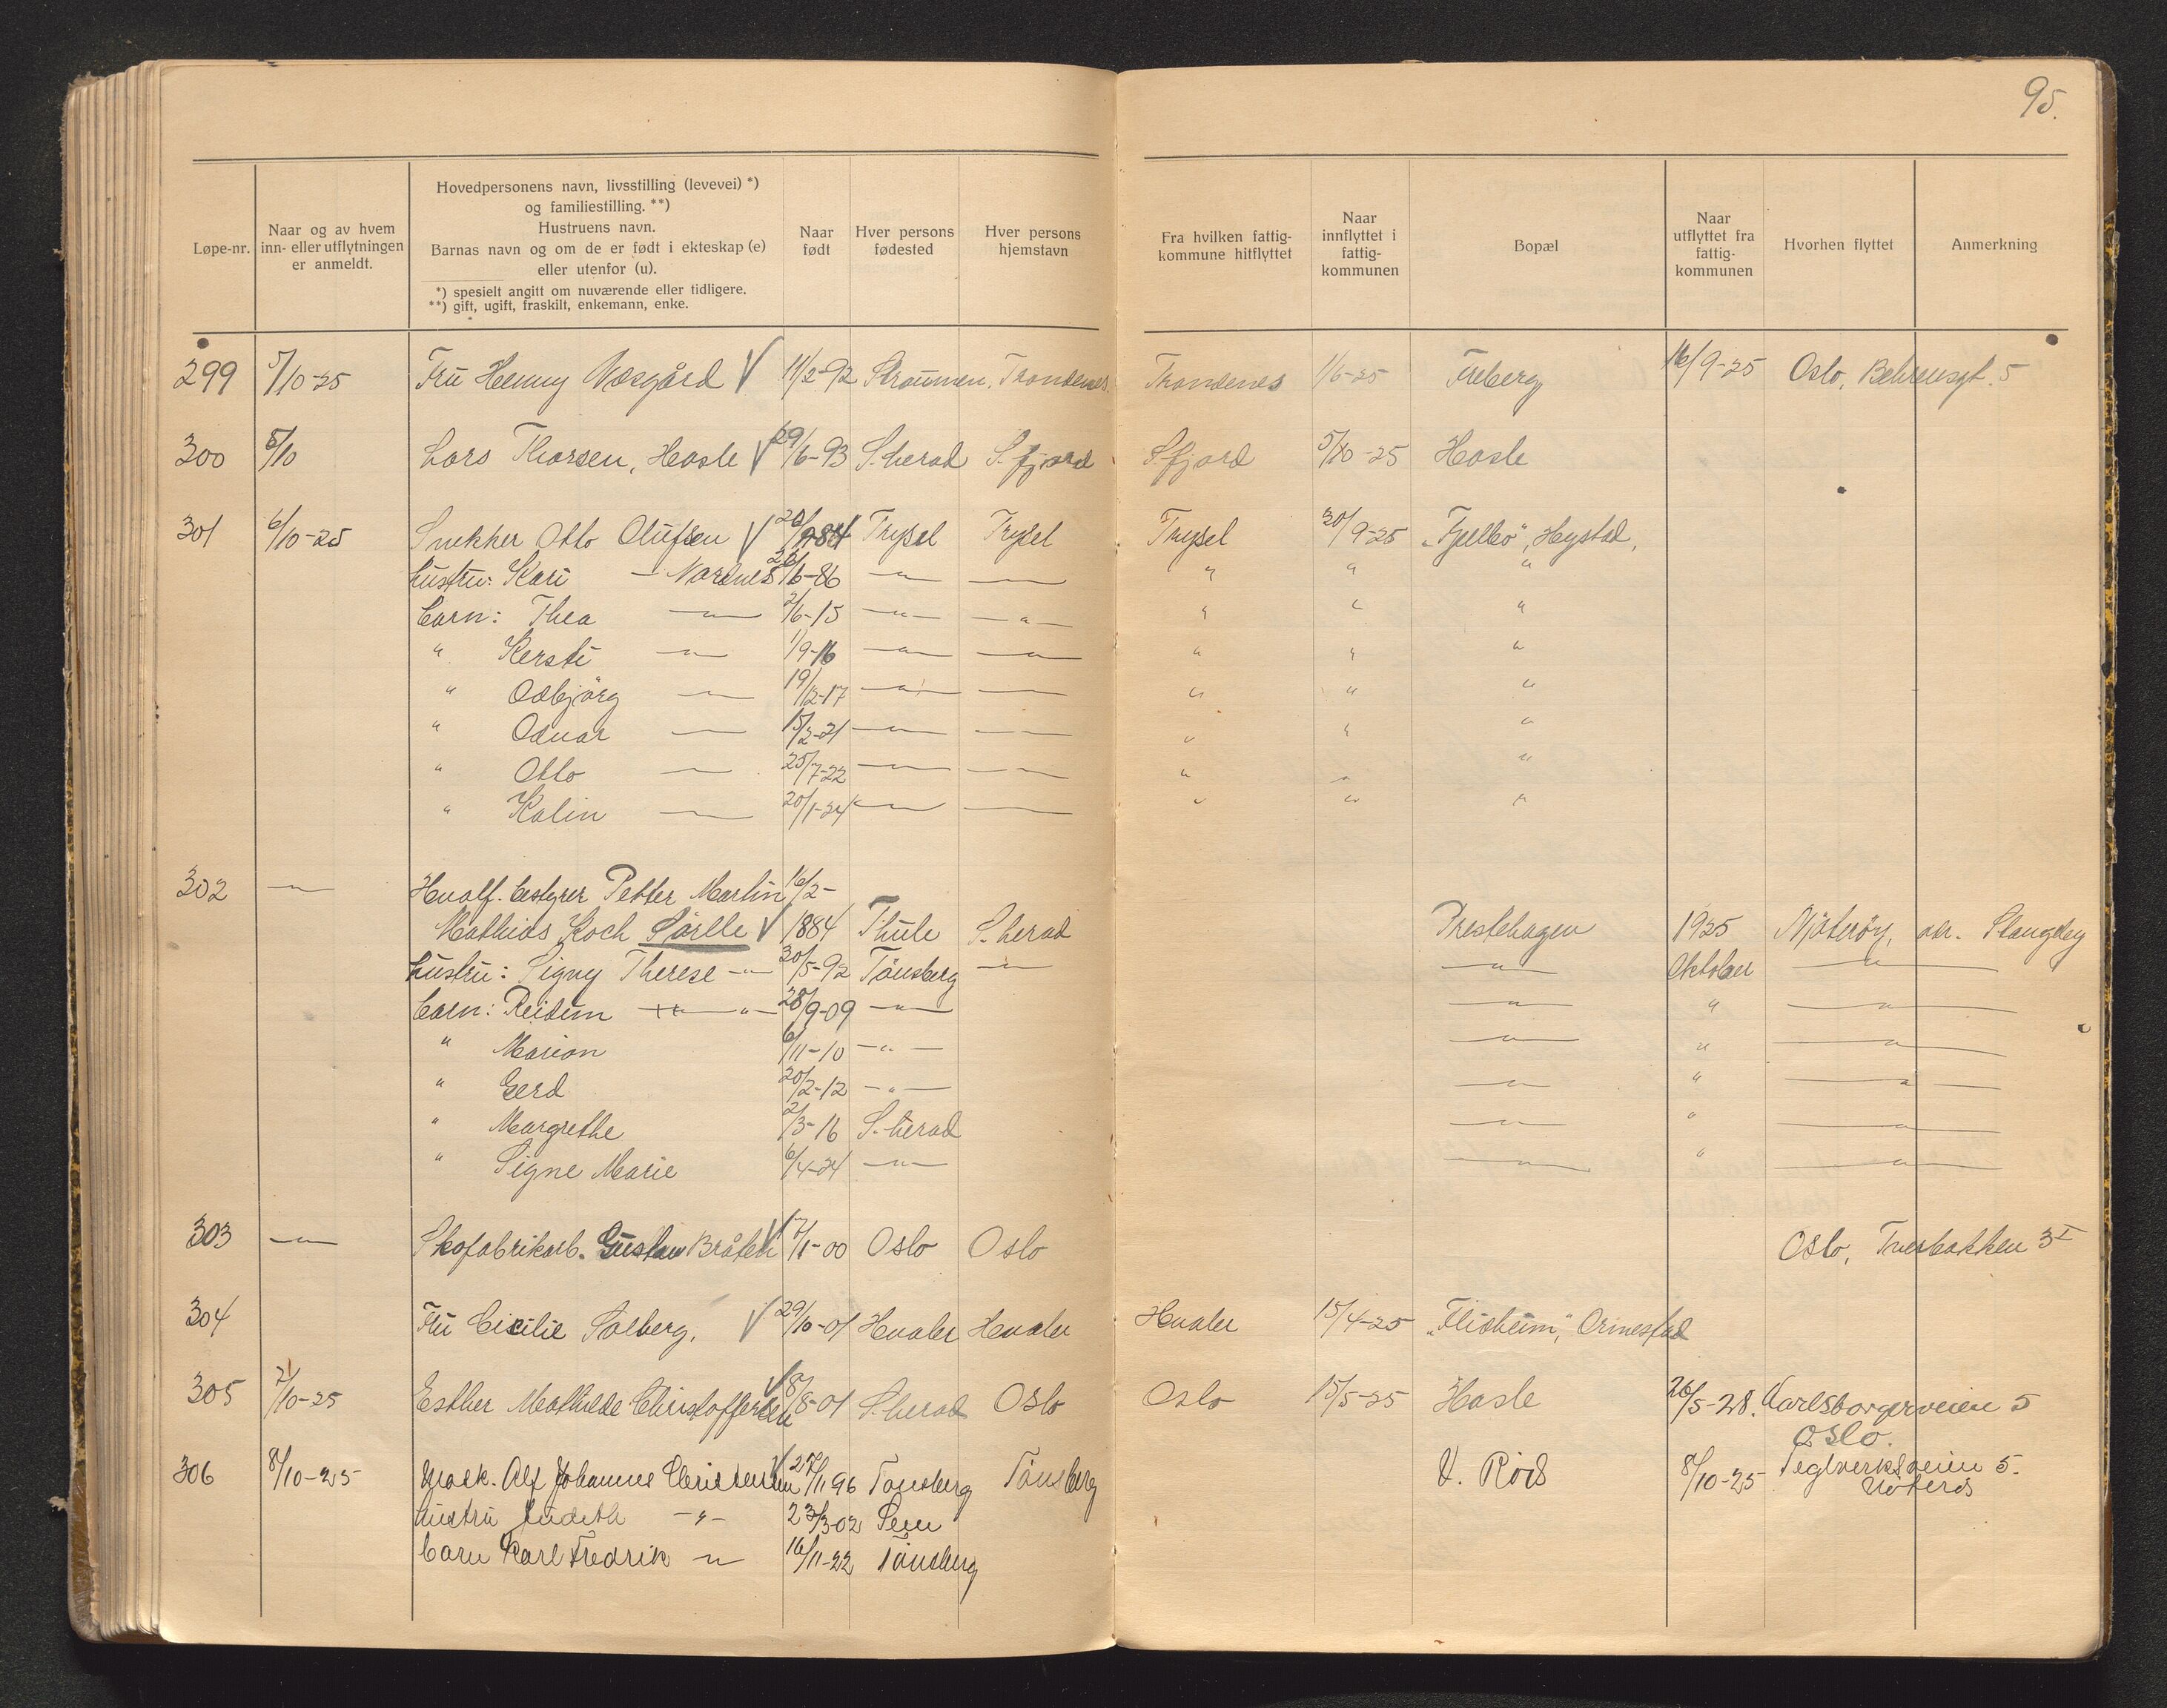 95.
Løpe-nr.
Naar og av hvem
inn- eller utflytningen
er anmeldt.
Hovedpersonens navn, livsstilling (levevei) *)
og familiestilling. **)
Hustruens navn.
Barnas navn og om de er født i ekteskap (e)
eller utenfor (u).
*) spesielt angitt om nuværende eller tidligere.
**) gift, ugift, fraskilt, enkemann, enke.
Naar
født
Hver persons
fødested
Hver persons
hjemstavn
Fra hvilken fattig-
kommune hitflyttet
Naar
innflyttet i
fattig-
kommunen
Bopæl
Naar
utflyttet fra
fattig-
kommunen
Hvorhen flyttet
Anmerkning
299 5/10-25 Fru Henny Næsgård V 11/2-92 Straumen, Trondenes. Trondenes 1/6-25 Freberg 16/9-25 Oslo, Behrensgt. 5
300 5/10 Lars Thorsen, Hasle V 29/6-93 S.herad S.fjord S.fjord 5/10-25 Hasle
301 6/10-25 Snekker Otto Olufsen V 20/9-84 Trysel Trysel Trysel 20/9-25 „Fjellbo", Hystad,
hustru: Kari — Nordnes 6-86 —"— —"— " " "
barn: Thea —"— 2/6-15 —"— —"— " " "
" Kersti —"— 1/9-16 —"— —"— " " "
" Odbjörg —"— 19/12-17 —"— —"— " " "
" Odvar —"— 15/2-21 —"— —"— " " "
" Otto —"— 25/7-22 —"— —"— " " "
" Kalin —"— 20/1-24 —"— —"— " " "
302 —"— Hvalf. bestyrer Petter Martin 16/2-
Mathias Koch Sörlle V 1884 Thule S.herad Prestehagen 1925 Nøtterøy, adr. Slangeby
hustru: Signy Therese —"— 20/5-92 Tönsberg —"— —"— Oktober —"—
barn: Reidun —"— 28/9-09 —"— —"— " —"—
" Marion 6/11-10 —"— —"— " —"—
" Gerd 20/2-12 —"— —"— " —"—
" Margrethe 2/3-16 S.herad —"— " —"—
" Signe Marie 6/4-24 —"— —"— " —"—
303 —"— Skofabrikarb. Gustav Bråten V 17/1-00 Oslo Oslo Oslo, Tuerbakken 3 I
304 Fru Cicilie Solberg. V 29/10-01 Hvaler Hvaler Hvaler 15/4-25 „Flisheim", Ormestad
305 7/10-25 Esther Mathilde Christoffersen V 8/8-01 S.herad Oslo Oslo 15/5-25 Hasle 26/5-28. Karlsborgerveien 5
Oslo.
306 8/10-25 Mask. Alf Johannes Christensen V 27/11 96 Tönsberg Tönsberg V. Röd 8/10-25 Teglverksveien 5.
Nöterö
hustru Judith —"— 23/3-02 Sem
barn Karl Fredrik —"— 16/11-22 Tönsberg